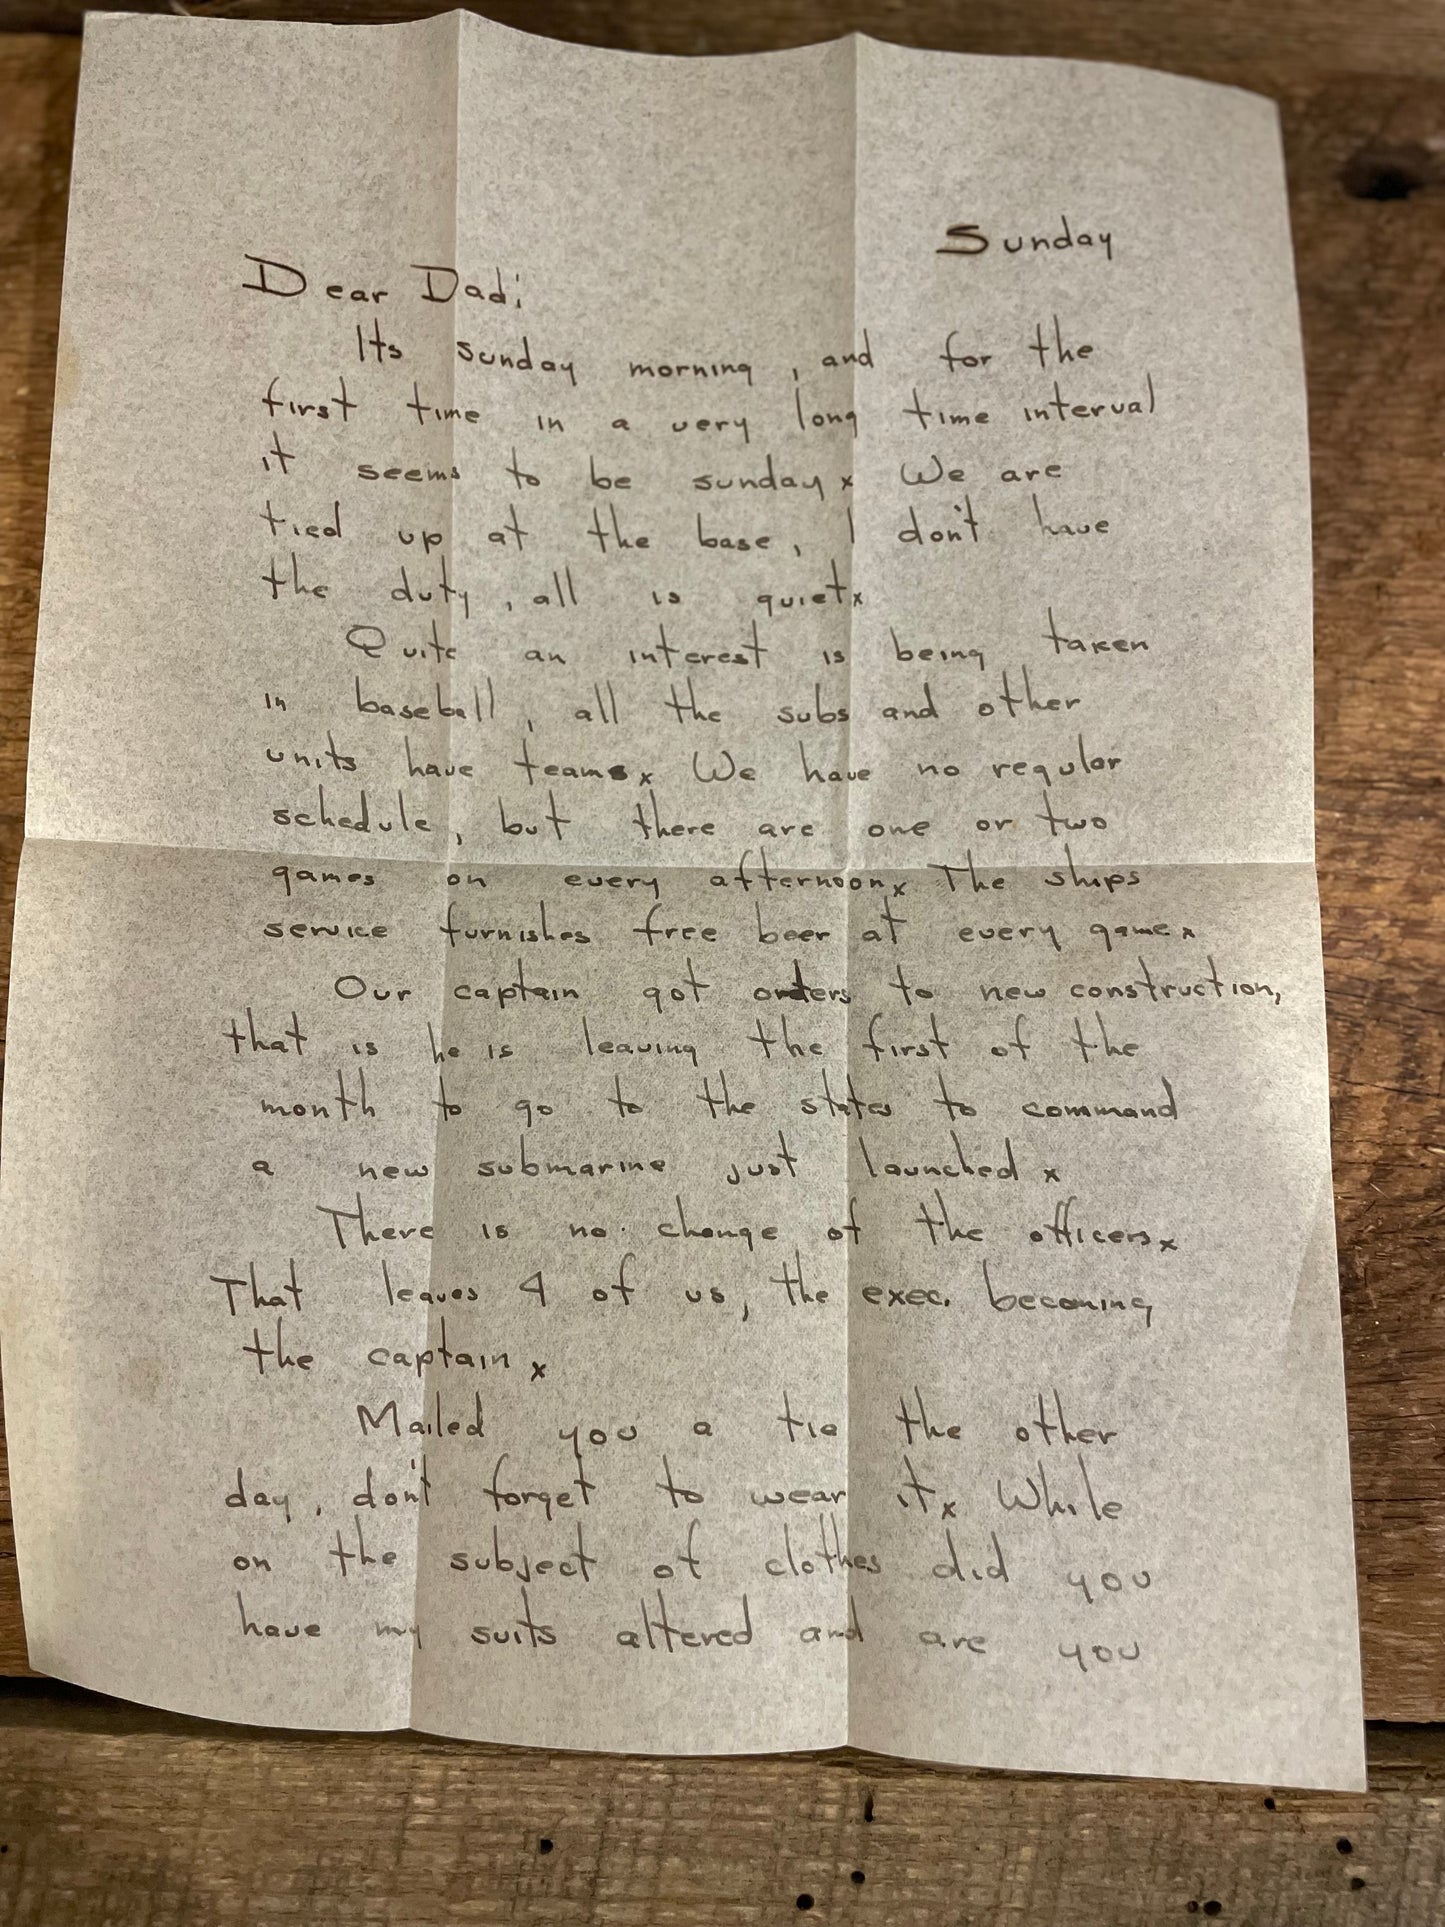 Sunday
Dear Dad;
Its sunday morning, and for the
first time in a very long time interval
it seems to be sundayx We are
tied up at the base, I don't have
the duty, all is quietx
Quite an interest is being taken
in baseball, all the subs and other
units have teamsx We have no regular
schedule, but there are one or two
games on every afternoonx The ships
service furnishes free beer at every gamex
Our captain got orders to new construction,
that is he is leaving the first of the
month to go to the states to command
a new submarine just launched x
There is no change of the officersx
That leaves 4 of us, the exec. becoming
the captain x
Mailed you a tie the other
day, don't forget to wear itx While
on the subject of clothes did you
have my suits altered and are you